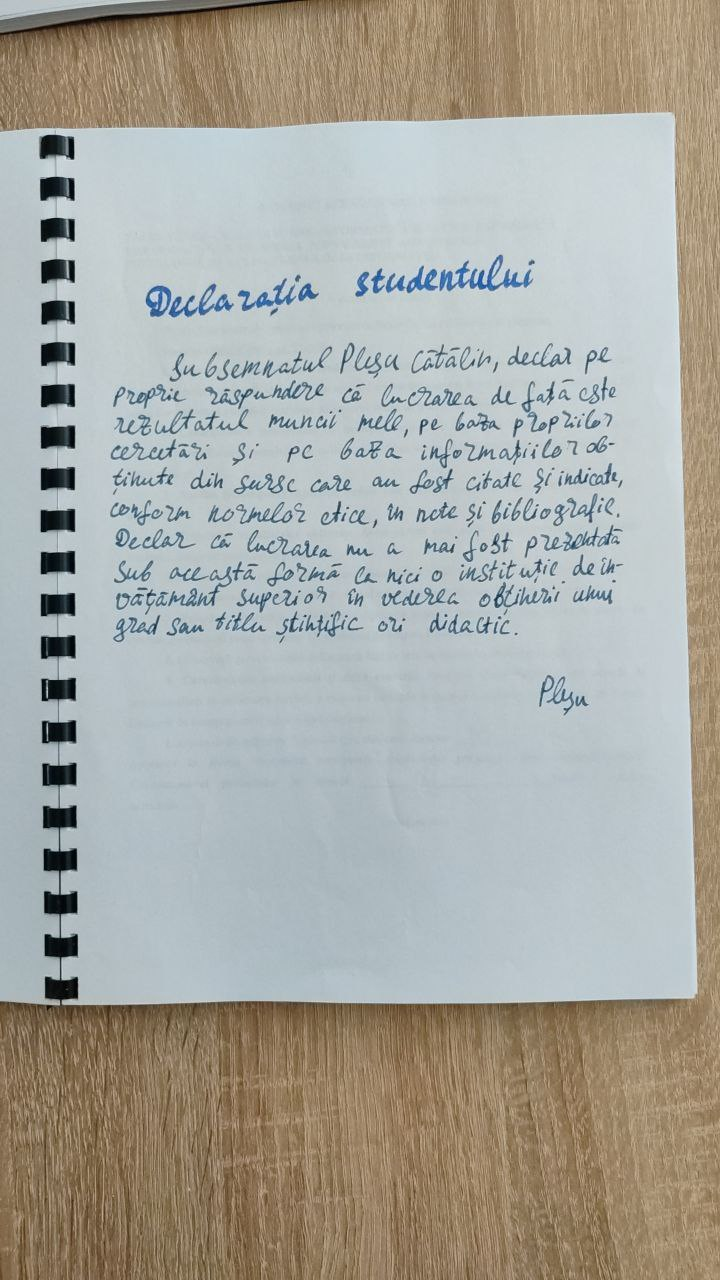 Declarația studentului
Subsemnatul Pleșu Cătălin, declar pe
proprie răspundere că lucrarea de față este
rezultatul muncii mele, pe baza propriilor
cercetări și pe baza informațiilor ob-
ținute din surse care au fost citate și indicate,
conform normelor etice, în note și bibliografie.
Declar că lucrarea nu a mai fost prezentată
sub această formă la nici o instituție de în-
vățământ superior în vederea obținerii unui
grad sau titlu științific ori didactic.
Pleșu